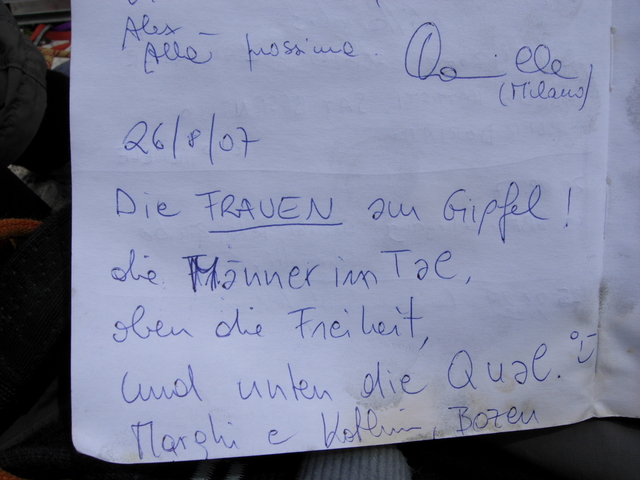 Alex
Alla prossima.
(Milano)
26/8/07
Die FRAUEN am Gipfel!
die Männer im Tal,
oben die Freiheit,
und unten die Qual.
Marghi e Kathrin, Bozen